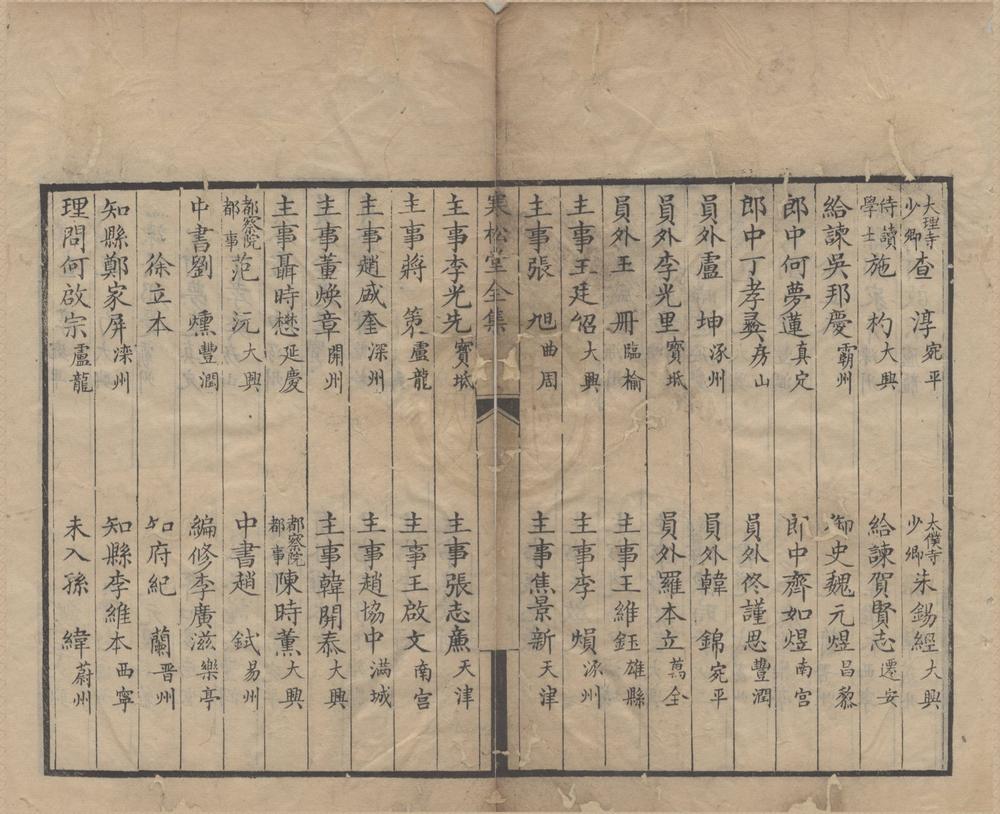 大理寺少卿查　淳宛平　太僕寺少卿朱錫經大興
侍讀學士施　杓大興　給諫賀賢志遷安
給諫吳邦慶霸州　御史魏元煜昌黎
郎中何夢蓮真定　郎中齊如煜南宮
郎中丁孝彜房山　員外佟謹思豐潤
員外盧　坤涿州　員外韓　錦宛平
員外李光里寶坻　員外羅本立萬全
員外王　冊臨榆　主事王維鈺雄縣
主事王廷紹大興　主事李　熉涿州
主事張　旭曲周　主事焦景新天津
寒松堂全集
主事李光先寶坻　主事張志廉天津
主事蔣　第盧龍　主事王啟文南宮
主事趙盛奎深州　主事趙協中滿城
主事董煥章開州　主事韓開泰大興
主事聶時懋延慶　都察院都事陳時薰大興
都察院都事范　沅大興　中書趙　鉽易州
中書劉　燻豐潤　編修李廣滋樂亭
徐立本　知府紀　蘭晋州
知縣鄭家屏灤州　知縣李維本西寧
理問何啟宗盧龍　未入孫　緯蔚州